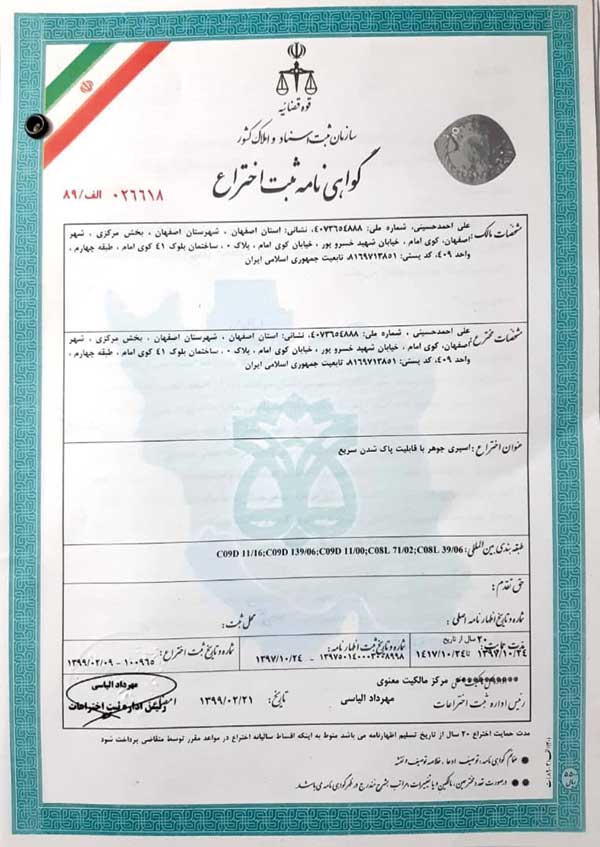 قوه قضائیه
سازمان ثبت اسناد و املاک کشور
گواهی نامه ثبت اختراع
۰۲۶۶۱۸ الف/۸۹
مشخصات مالک: علی احمدحسینی، شماره ملی: ۴۰۷۳۶۵۴۸۸۸، نشانی: استان اصفهان ، شهرستان اصفهان ، بخش مرکزی ، شهر
اصفهان، کوی امام ، خیابان شهید خسرو پور ، خیابان کوی امام ، پلاک ۰ ، ساختمان بلوک ۴۱ کوی امام ، طبقه چهارم ،
واحد ۴۰۹، کد پستی: ۸۱۶۹۷۱۳۸۵۱، تابعیت جمهوری اسلامی ایران
مشخصات مخترع: علی احمدحسینی ، شماره ملی: ۴۰۷۳۶۵۴۸۸۸، نشانی: استان اصفهان ، شهرستان اصفهان ، بخش مرکزی ، شهر
اصفهان، کوی امام ، خیابان شهید خسرو پور ، خیابان کوی امام ، پلاک ۰ ، ساختمان بلوک ۴۱ کوی امام ، طبقه چهارم ،
واحد ۴۰۹، کد پستی: ۸۱۶۹۷۱۳۸۵۱، تابعیت جمهوری اسلامی ایران
عنوان اختراع: اسپری جوهر با قابلیت پاک شدن سریع
طبقه بندی بین المللی: C09D 11/16;C09D 139/06;C09D 11/00;C08L 71/02;C08L 39/06
حق تقدم:
شماره و تاریخ اظهار نامه اصلی: محل ثبت:
مدت حمایت: ۲۰ سال از تاریخ
۱۳۹۷/۱۰/۲۴ تا ۱۴۱۷/۱۰/۲۴
شماره و تاریخ ثبت اظهار نامه:
۱۳۹۷۵۰۱۴۰۰۰۳۰۰۸۸۹۸ - ۱۳۹۷/۱۰/۲۴
شماره و تاریخ ثبت اختراع: ۱۰۰۹۶۵ - ۱۳۹۹/۰۲/۰۹
مرکز مالکیت معنوی
رئیس اداره ثبت اختراعات
مهرداد الیاسی
تاریخ: ۱۳۹۹/۰۲/۲۱
مهرداد الیاسی
رئیس اداره ثبت اختراعات
مدت حمایت اختراع ۲۰ سال از تاریخ تسلیم اظهارنامه می باشد منوط به اینکه اقساط سالیانه اختراع در مواعد مقرر توسط متقاضی پرداخت شود
ضمائم گواهی نامه: توصیف، ادعا، خلاصه توصیف و نقشه
در صورت تعدد مخترعین، مالکین و یا تغییرات، مراتب بشرح مندرج در ظهر گواهی نامه می باشد.